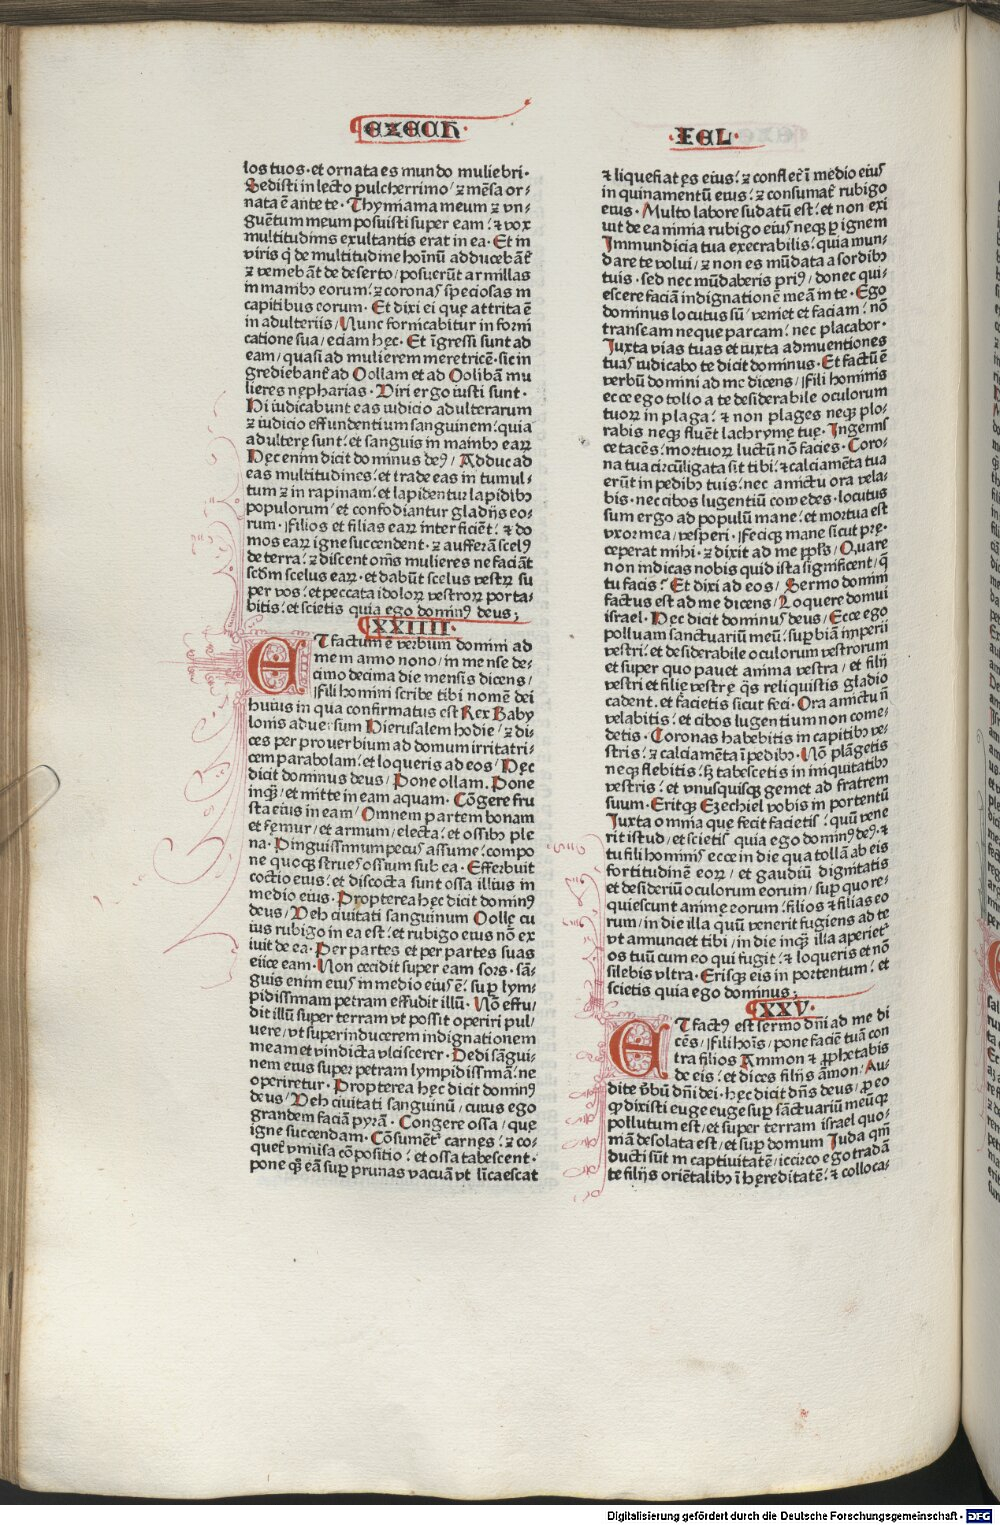 EZECH·
·IEL·
los tuos· et ornata es mundo muliebri·
Sedisti in lecto pulcherrimo/ ꝛ mēsa or-
nata ē ante te· Thymiama meum ꝛ vn-
guētum meum posuisti super eam: ⁊ vox
multitudinis exultantis erat in ea· Et in
viris q̄ de multitudine hoīnū adducebāt̄
ꝛ veniebāt de deserto/ posuerūt armillas
in manibꝫ eorum: ꝛ coronas speciosas in
capitibus eorum· Et dixi ei que attrita ē
in adulteriis/ Nunc fornicabitur in forni
catione sua/ eciam hęc· Et īgressi sunt ad
eam/ quasi ad mulierem meretricē· sic in
grediebant̄ ad Oollam et ad Oolibā mu
lieres nępharias· Viri ergo iusti sunt·
Hi iudicabunt eas iudicio adulterarum
ꝛ iudicio effundentium sanguinem: quia
adulterę sunt: et sanguis in manibꝫ earꝝ
Hęc enim dicit dominus deꝰ/ Adduc ad
eas multitudines: et trade eas in tumul-
tum ꝛ in rapinam: et lapidentur lapidibꝫ
populorum/ et confodiantur gladijs eo-
rum· Filios et filias earꝝ interficiēt: ⁊ do
mos earꝝ igne succendent· ꝛ aufferā scelꝰ
de terra: ꝛ discent om̄s mulieres ne faciāt
scd̄m scelus earꝝ· et dabūt scelus vestrꝝ su
per vos: et peccata idolorꝝ vestrorꝝ porta-
bitis: et scietis quia ego dominꝰ deus;
XXIIII·
ET factum ē verbum domini ad
me in anno nono/ in mense de-
cimo decima die mensis dicens/
Fili homini scribe tibi nomē dei
huius in qua confirmatus est Rex Baby
lonis aduersum Hierusalem hodie/ ꝛ di-
ces per prouerbium ad domum irritatri-
cem parabolam: et loqueris ad eos/ Hęc
dicit dominus deus/ Pone ollam. Pone
inqꝫ/ et mitte in eam aquam· Cōgere fru
sta eius in eam/ Omnem partem bonam
et femur/ et armum/ electa: et ossibꝫ ple
na· Pinguissimum pecus assume: compo
ne quoqꝫ strues ossium sub ea· Efferbuit
coctio eius: et discocta sunt ossa illius in
medio eius· Propterea hęc dicit dominꝰ
deus/ Veh ciuitati sanguinum Oollę cu
ius rubigo in ea est: et rubigo eius nō ex
iuit de ea· Per partes et per partes suas
eiice eam· Non cecidit super eam sors· sā-
guis enim eiꝰ in medio eiꝰ ē: suꝑ lym-
pidissimam petram effudit illū· Nō effu/
dit illū super terram vt possit operiri pul/
uere/ vt superinducerem indignationem
meam et vindicta vlciscerer· Dedi sāgui-
nem eius super petram lympidissimā: ne
operiretur· Propterea hęc dicit dominꝰ
deus/ Veh ciuitati sanguinū/ cuius ego
grandem faciā pyrā· Congere ossa/ quę
igne succendam· Cōsument̄ carnes: ꝛ co-
quet̄ vniuersa cōpositio: et ossa tabescent·
pone qꝫ eā suꝑ prunas vacuā vt liⁱcaescat
⁊ liquefiat ęs eius: ꝛ conflet̄ ī medio eiꝰ
inquinamentū eius: ꝛ consumat̄ rubigo
eius· Multo labore sudatū est: et non exi
uit de ea nimia rubigo eiꝰ neqꝫ ꝑ ignem
Immundicia tua execrabilis: quia mun-
dare te volui/ ꝛ non es mūdata a sordibꝫ
tuis· sed nec mūdaberis priꝰ/ donec qui-
escere faciā indignationē meā in te· Ego
dominus locutus sū/ veniet et faciam: nō
transeam neque parcam: nec placabor·
Juxta vias tuas et iuxta adinuentiones
tuas iudicabo te dicit dominus· Et factū ē
verbū domini ad me dicens/ Fili hominis
ecce ego tollo a te desiderabile oculorum
tuorꝝ in plaga: ⁊ non plages neqꝫ plo-
rabis neqꝫ fluēt lachrymę tuę· Ingemis
ce tacēs: mortuorꝝ luctū nō facies· Coro-
na tua circūligata sit tibi: ⁊ calciamēta tua
erūt in pedibꝫ tuis: nec amictu ora vela-
bis· nec cibos lugentiū comedes· locutus
sum ergo ad populū mane: et mortua est
vxor mea/ vesperi· Feciqꝫ mane sicut prę-
ceperat mihi· ꝛ dixit ad me ppl̄s/ Quare
non indicas nobis quid ista significent/ q̄
tu facis: Et dixi ad eos/ Sermo domini
factus est ad me dicens/ Loquere domui
israel· Hęc dicit dominus deus/ Ecce ego
polluam sanctuariū meū: suꝑbiā imperii
vestri: et desiderabile oculorum vestrorum
et super quo pauet anima vestra/ et filij
vestri et filię vestrę q̄s reliquistis gladio
cadent· et facietis sicut feci· Ora amictu ñ
velabitis: et cibos lugentium non come-
detis· Coronas habebitis in capitibꝫ ve-
stris: ꝛ calciamēta ī pedibꝫ· Nō plāgetis
neqꝫ flebitis: sꝫ tabescetis in iniquitatibꝫ
vestris: et vnusquisqꝫ gemet ad fratrem
suum· Eritqꝫ Ezechiel vobis in portentū
Juxta omnia quę fecit facietis: quū vene
rit istud/ et scietis quia ego dominꝰ deꝰ· ⁊
tu fili hominis ecce in die qua tollā ab eis
fortitudinē eorꝝ/ et gaudiū dignitatis
et desideriū oculorum eorum/ suꝑ quo re-
quiescunt animę eorum: filios ⁊ filias eo
rum/ in die illa quū venerit fugiens ad te
vt annunciet tibi/ in die inqꝫ illa aperiet̄
os tuū cum eo qui fugit: ⁊ loqueris et nō
silebis vltra· Erisqꝫ eis in portentum: et
scietis quia ego dominus;
XXV·
ET factꝰ est sermo dn̄i ad me di
cēs/ Fili hoīs/ pone faciē tuā con
tra filios Ammon ⁊ ꝓphetabis
de eis: et dices filijs āmon: Au-
dite v̄bū dn̄i dei· hęc dicit dn̄s deus/ ꝓ eo
ꝙ dixisti euge euge suꝑ sāctuariū meū qꝛ
pollutum est/ et super terram israel quo-
niā desolata est/ et suꝑ domum Juda qm̄
ducti sūt in captiuitatē/ iccirco ego tradā
te filijs oriētalibꝫ ī hęreditatē: ⁊ colloca-
Digitalisierung gefördert durch die Deutsche Forschungsgemeinschaft - DFG